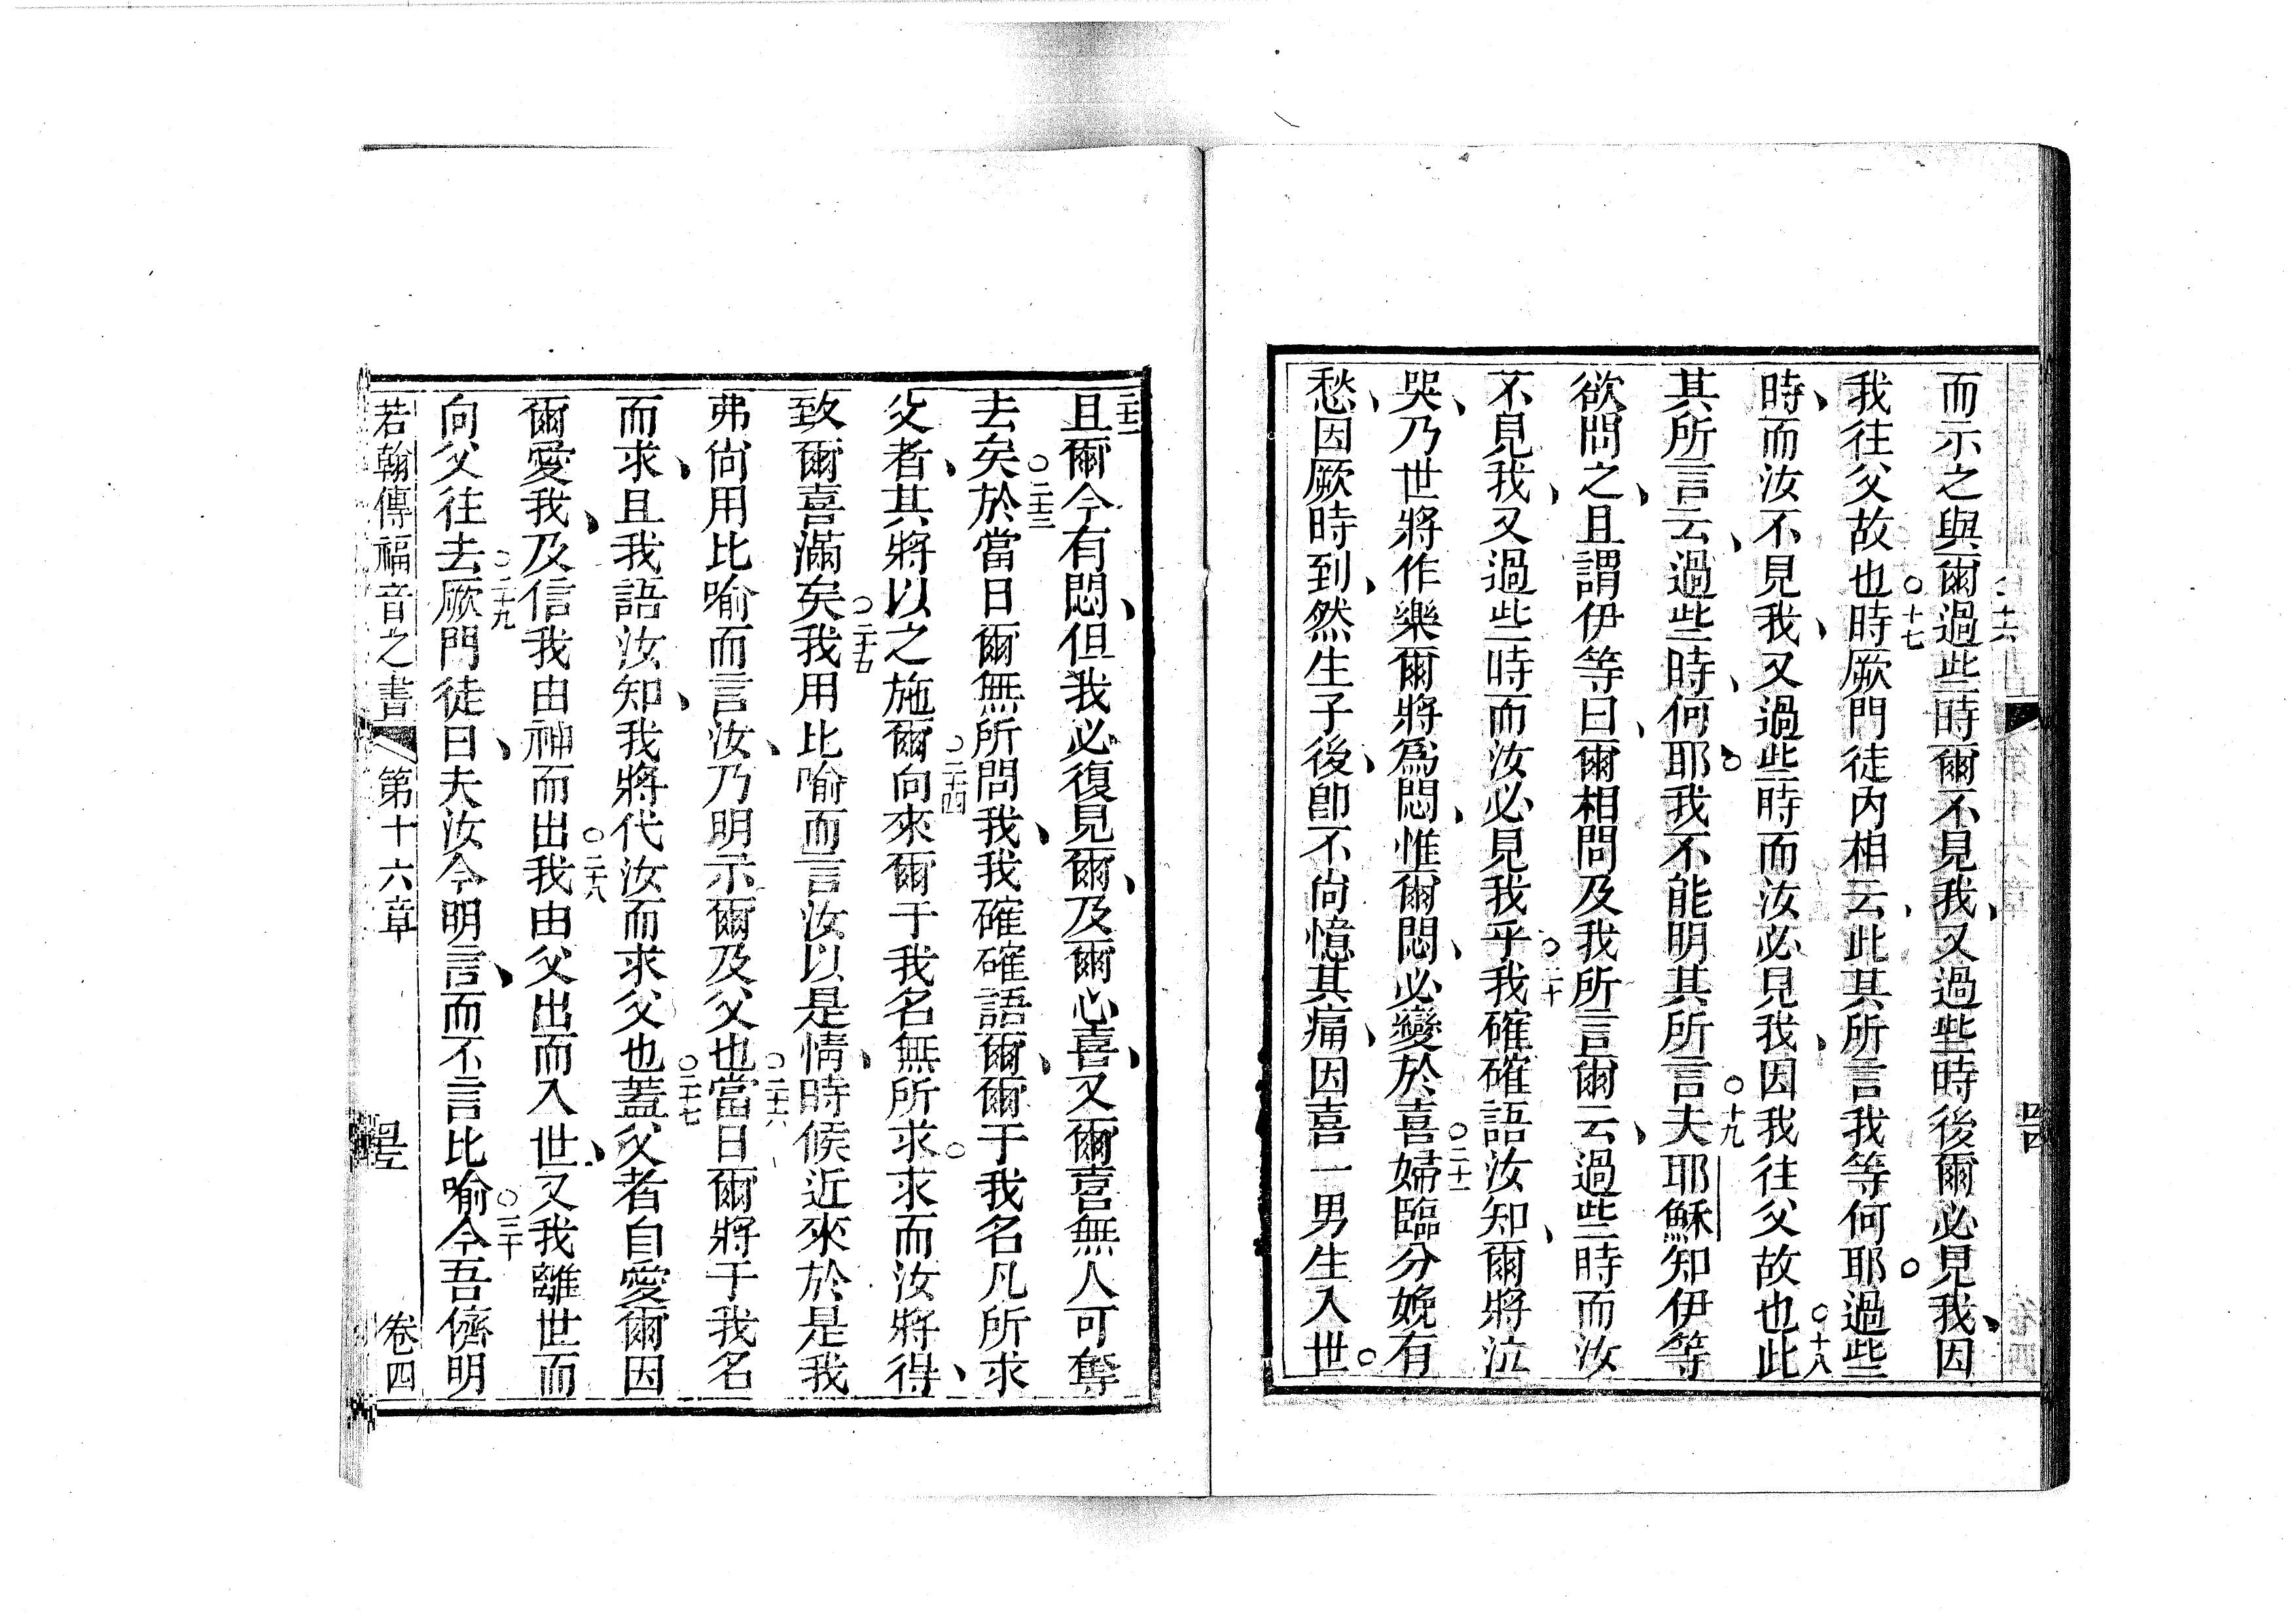 而示之與爾過些時爾不見我、又過些時後爾必見我、因
十六
我往父故也時厥門徒內相云、此其所言我等何耶。過些
○十七
時、而汝不見我、又過些時而汝必見我、因我往父故也此
○十八
其所言云、過些時、何耶。我不能明其所言夫耶穌知伊等
○十九
欲問之、且謂伊等曰、爾相問及我所言爾云、過些時而汝
不見我、又過些時而汝必見我乎我確確語汝知、爾將泣
○二十
哭、乃世將作樂爾將爲悶、惟爾悶、必變於喜婦臨分娩有
○二十一
愁、因厥時到、然生子後、卽不尚憶其痛、因喜一男生入世。
二十二
且爾今有悶、但我必復見爾、及爾心喜、又爾喜無人可奪
去矣於當日爾無所問我、我確確語爾、爾于我名凡所求
○二十三
父者、其將以之施爾向來爾于我名無所求。求而汝將得、
○二十四
致爾喜滿矣我用比喻而言汝以是情、時候近來於是我
○二十五
弗尚用比喻而言汝、乃明示爾及父也當日爾將于我名
○二十六
而求、且我語汝知、我將代汝而求父也蓋父者自愛爾因
○二十七
爾愛我、及信我由神而出我由父出而入世、又我離世而
○二十八
向父往去厥門徒曰、夫汝今明言、而不言比喻今吾儕明
○二十九
○三十
若翰傳福音之書 第十六章 卷四